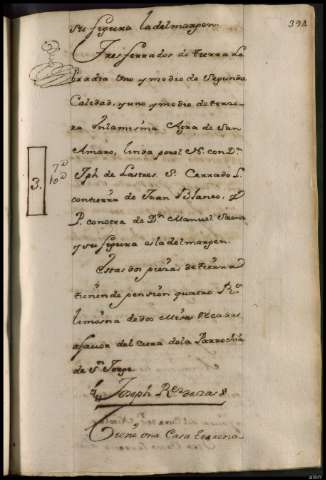 394
su figura la del margen.
Tres ferrados de tierra La
bradia Uno y medio de Segunda
Calidad, y uno y medio de terze
ra Enlamisma Agra de San
Amaro, linda por el N. con Dn.
Jph de Lastres. S. Cerrado L.
contierra de Juan Blanco, y
P. conotra de Dn. Manuel
y su figura es la del margen.
Estas dos piezas de tierra
tienen de pension quatro Rs.
limosna de dos Misas
del cura dela Parrochia
de Sn. Jorge
3.
Joseph Rs.
Tiene una Casa